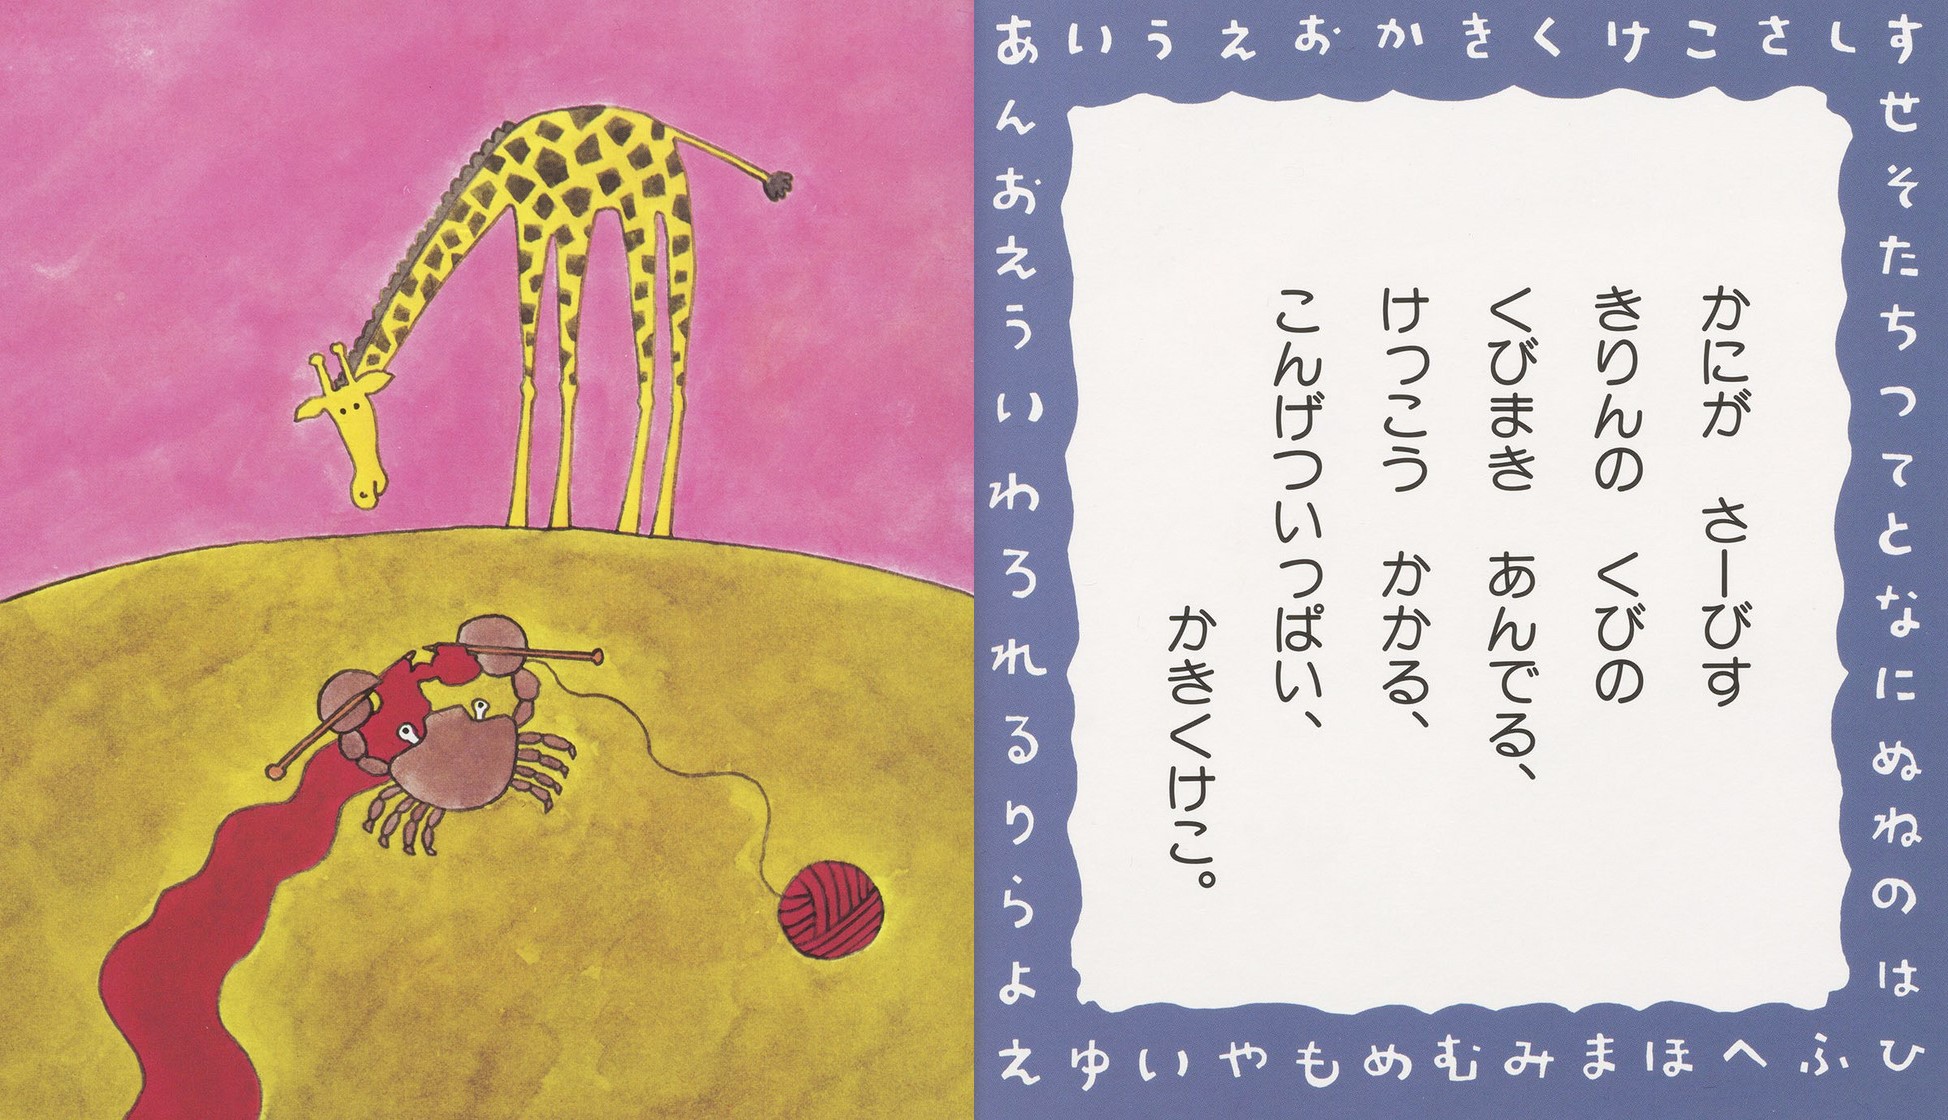 かにが　さーびす
きりんの　くびの
くびまき　あんでる、
けつこう　かかる、
こんげついっぱい、
かきくけこ。
あいうえおかきくけこさしす
せそたちつてとなにぬねのは
ひふへほまみむめもやいゆえ
よらりるれろわいうえおん